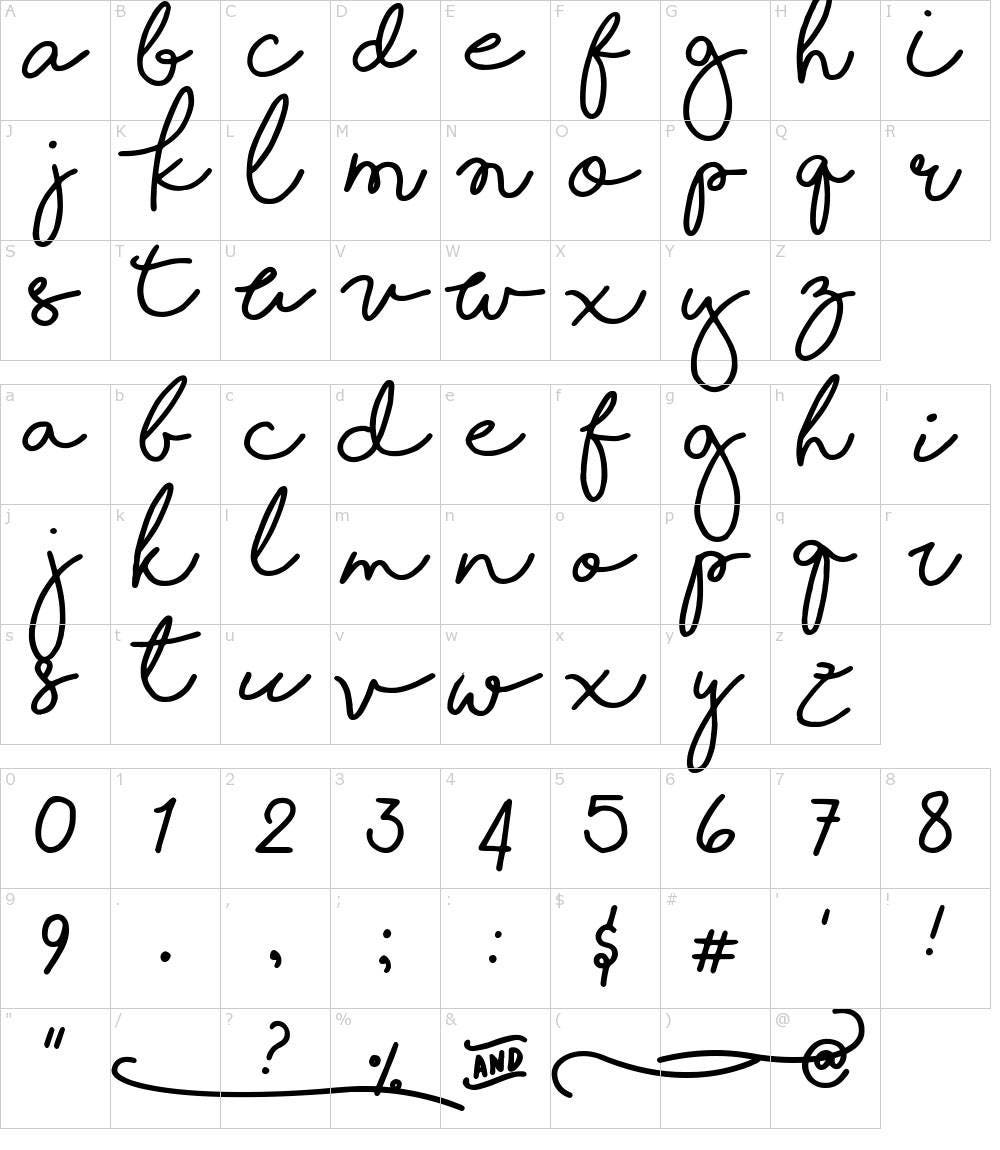 A B C D E F G H I
a b c d e f g h i
J K L M N O P Q R
j k l m n o p q r
S T U V W X Y Z
s t u v w x y z
a b c d e f g h i
a b c d e f g h i
j k l m n o p q r
j k l m n o p q r
s t u v w x y z
s t u v w x y z
0 1 2 3 4 5 6 7 8
0 1 2 3 4 5 6 7 8
9 . , ; : $ # ' !
9 . , ; : $ # ' !
" / ? % & ( ) @
" ? % AND @